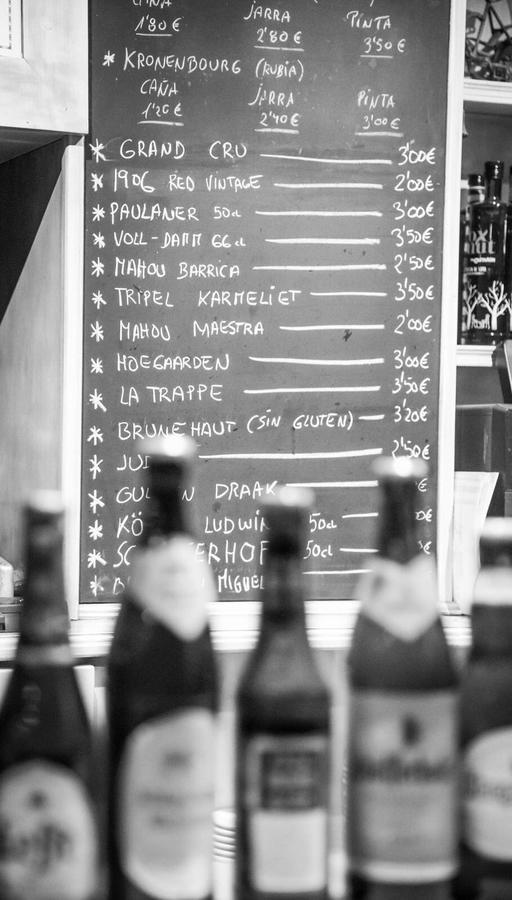 CAÑA JARRA PINTA
1'80€ 2'80€ 3'50€
* KRONENBOURG (RUBIA)
CAÑA JARRA PINTA
1'20€ 2'40€ 3'00€
* GRAND CRU 3'00€
* 1906 RED VINTAGE 2'00€
* PAULANER 50cl 3'00€
* VOLL-DAMM 66cl 3'50€
* MAHOU BARRICA 2'50€
* TRIPEL KARMELIET 3'50€
* MAHOU MAESTRA 2'00€
* HOEGAARDEN 3'00€
* LA TRAPPE 3'50€
* BRUNEHAUT (SIN GLUTEN) 3'20€
* JUD 2'50€
* GUL N DRAAK €
* KÖ LUDWI 50cl 0€
* SC FERHOF 50cl €
* MIGUEL